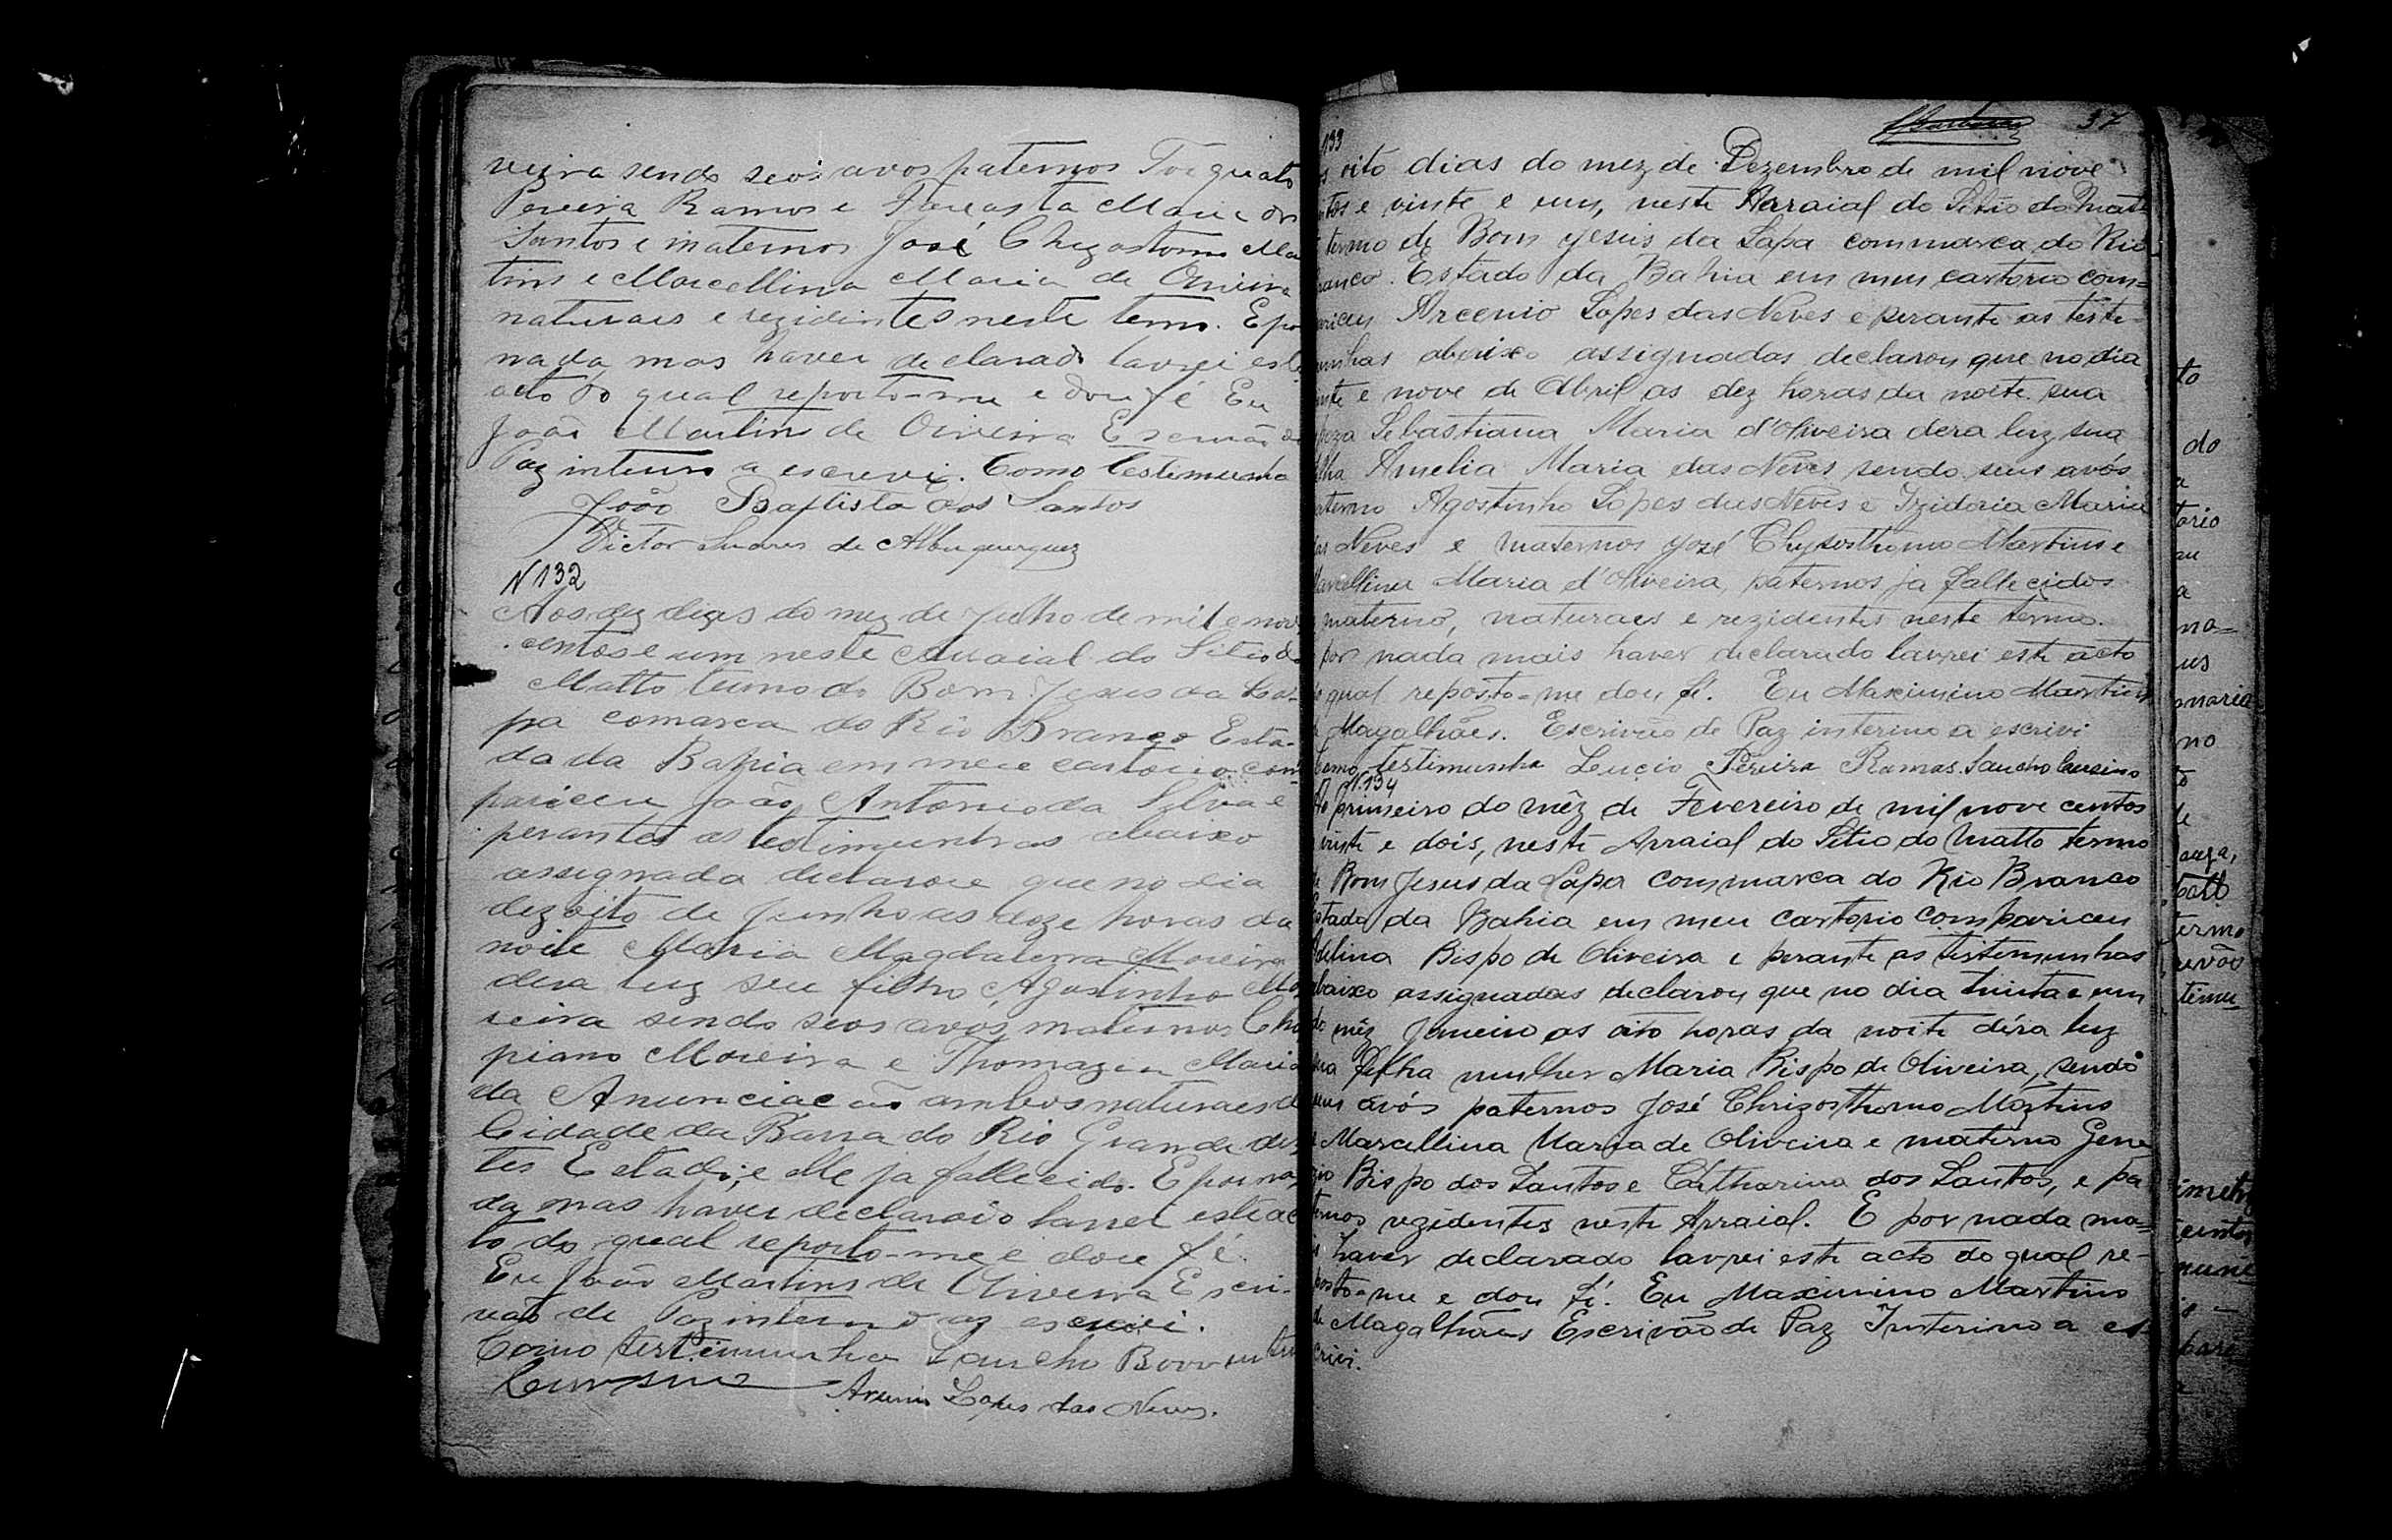 veira sendo seos avos paternos Torquato
Pereira Ramos e Maria dos
Santos e maternos José Chrizostomo Mar
tins e Marcellina Maria de Oliveira
naturaes e rezidintes neste termo. E por
nada mas haver declarado lavrei este
acto do qual reporto-me e dou fé Eu
João Martins de Oliveira Escrivão de
Paz interino a escrevi. Como testemunha
João Baptista dos Santos
Victor Soares de Albuquerquez
N 132
Aos dez dias do mez de Julho de mil e nove
centos e um neste Arraial do Sitio do
Matto termo do Bom Jesus da La-
pa comarca do Rio Branco Esta-
do da Bahia em meu cartorio com
pariceu João Antonio da Silva e
perante as testimunhas abaixo
assignada declarou que no dia
dezoito de Junho as doze horas da
noite Maria Magdalena Moreira
dera luz seu filho Agostinho Mo
reira sendo seos avos maternos
piano Moreira e Thomazia Maria
da Anunciacão ambos naturaes da
Cidade da Barra do Rio Grande des
tes Estado, e elle ja fallecido. E por na
da mas haver declarado lavrei este ac
to do qual reporto-me e dou fé.
Eu João Martins de Oliveira Escri-
vão de Paz interino as escrevi.
Como testimunha Sancho
Cursino Arcenio Lopes das Neves.
37
133
s oito dias do mez de Dezembro de mil nove
ntos e vinte e um, neste Arraial do Sitio do Matt
termo de Bom Jesus da Lapa commarca do Rio
ranco. Estado da Bahia em meu cartorio com=
pariceu Arcenio Lopes das Neves e perante as teste-
munhas abaixo assignadas declarou que no dia
inte e nove de Abril as dez horas da noite sua
speza Sebastiana Maria d'Oliveira dera luz sua
filha Amelia Maria das Neves sendo seus avós
aterno Agostinho Lopes das Neves e Izidoria Maria
das Neves e maternos José Chysosthomo Martins e
Marcellina Maria d'Oliveira, paternos ja fallecidos
materno, naturaes e rezidentes neste termo.
por nada mais haver declarado lavrei este acto
do qual reposto=me dou fé. Eu Maximino Martins
Magalhães. Escrivão de Paz interino a escrivi
Como testimunha Lucio Pereira Ramos. Sancho Cursino
N.134
Ao primeiro do mêz de Fevereiro de mil nove centos
vinte e dois, neste Arraial do Sitio do Matto termo
de Bom Jesus da Lapa commarca do Rio Branco
Estado da Bahia em meu cartorio compariceu
Adelina Bispo de Oliveira e perante as tistemunhas
abaixo assignadas declarou que no dia trinta e um
do mêz Janeiro as oito horas da noite déra luz
sua filha mulher Maria Bispo de Oliveira, sendo
seus avós paternos José Chrizosthomo Martins
e Marcellina Maria de Oliveira e materno Gene
zio Bispo dos Santos e Catharina dos Santos, e pa
ternos rezidentes neste Arraial. E por nada ma=
is haver declarado lavrei este acto do qual re-
posto=me e dou fé. Eu Maximino Martins
de Magalhães Escrivão de Paz Interino a es-
crivi.